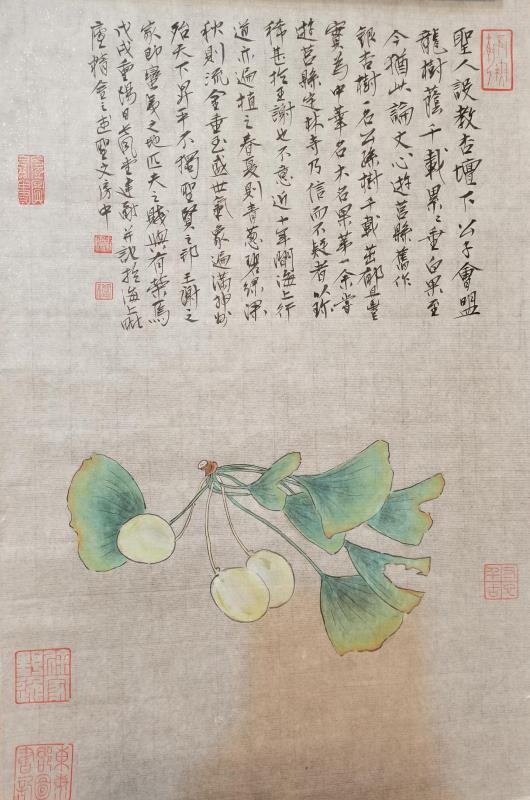 聖人設教杏壇下公子會盟
龍樹蔭千載累累垂白果至
今猶此論文心遊莒縣舊作
銀杏樹一名公孫樹千載茁鬱且豐
實為中華名木名果第一余嘗
遊莒縣定林寺乃信而不疑者以珍
稀甚於王謝也不意近十年間海上行
道亦遍植之春夏則青蔥碧綠深
秋則流金垂玉盛世氣象遍滿神州
殆天下昇平不獨聖賢之邦王謝之
家即蠻夷之地匹夫之賤與有榮焉
戊戌重陽日 並記於海上
座精舍之 聖文房中